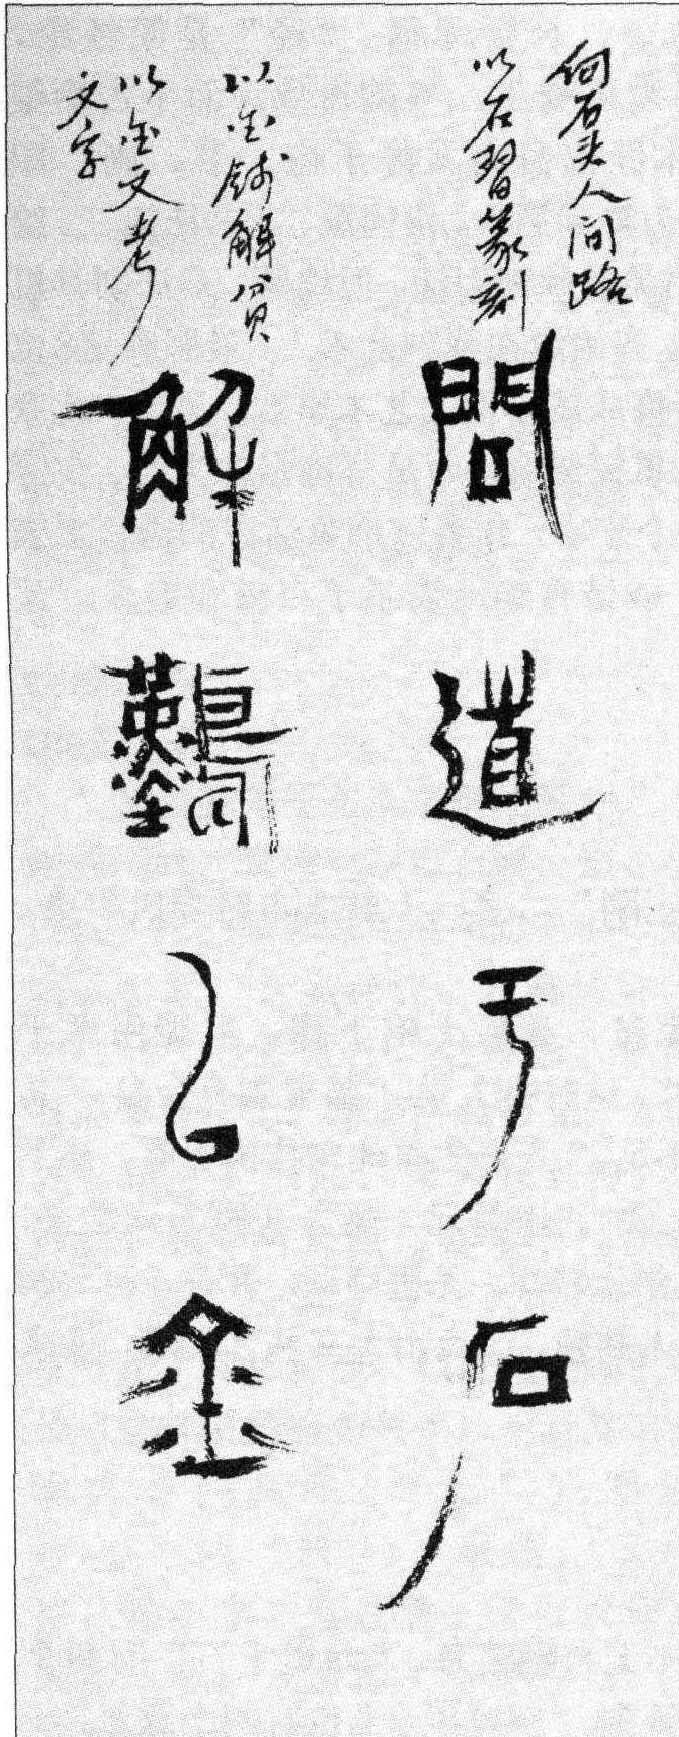 向石头人问路
以石習篆刻
問道于石
以金钱解贫
以金文考
文字
解難以金